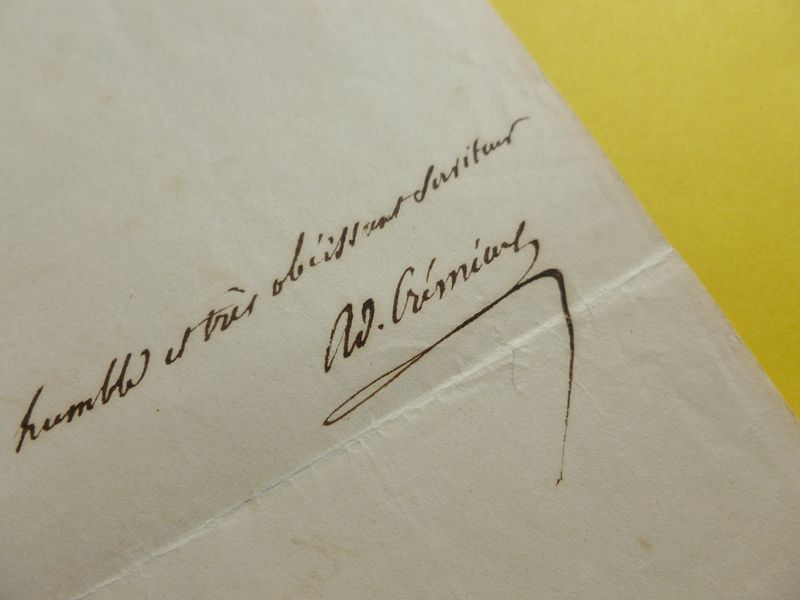 humble et très obéissant serviteur
Ad. Crémieux